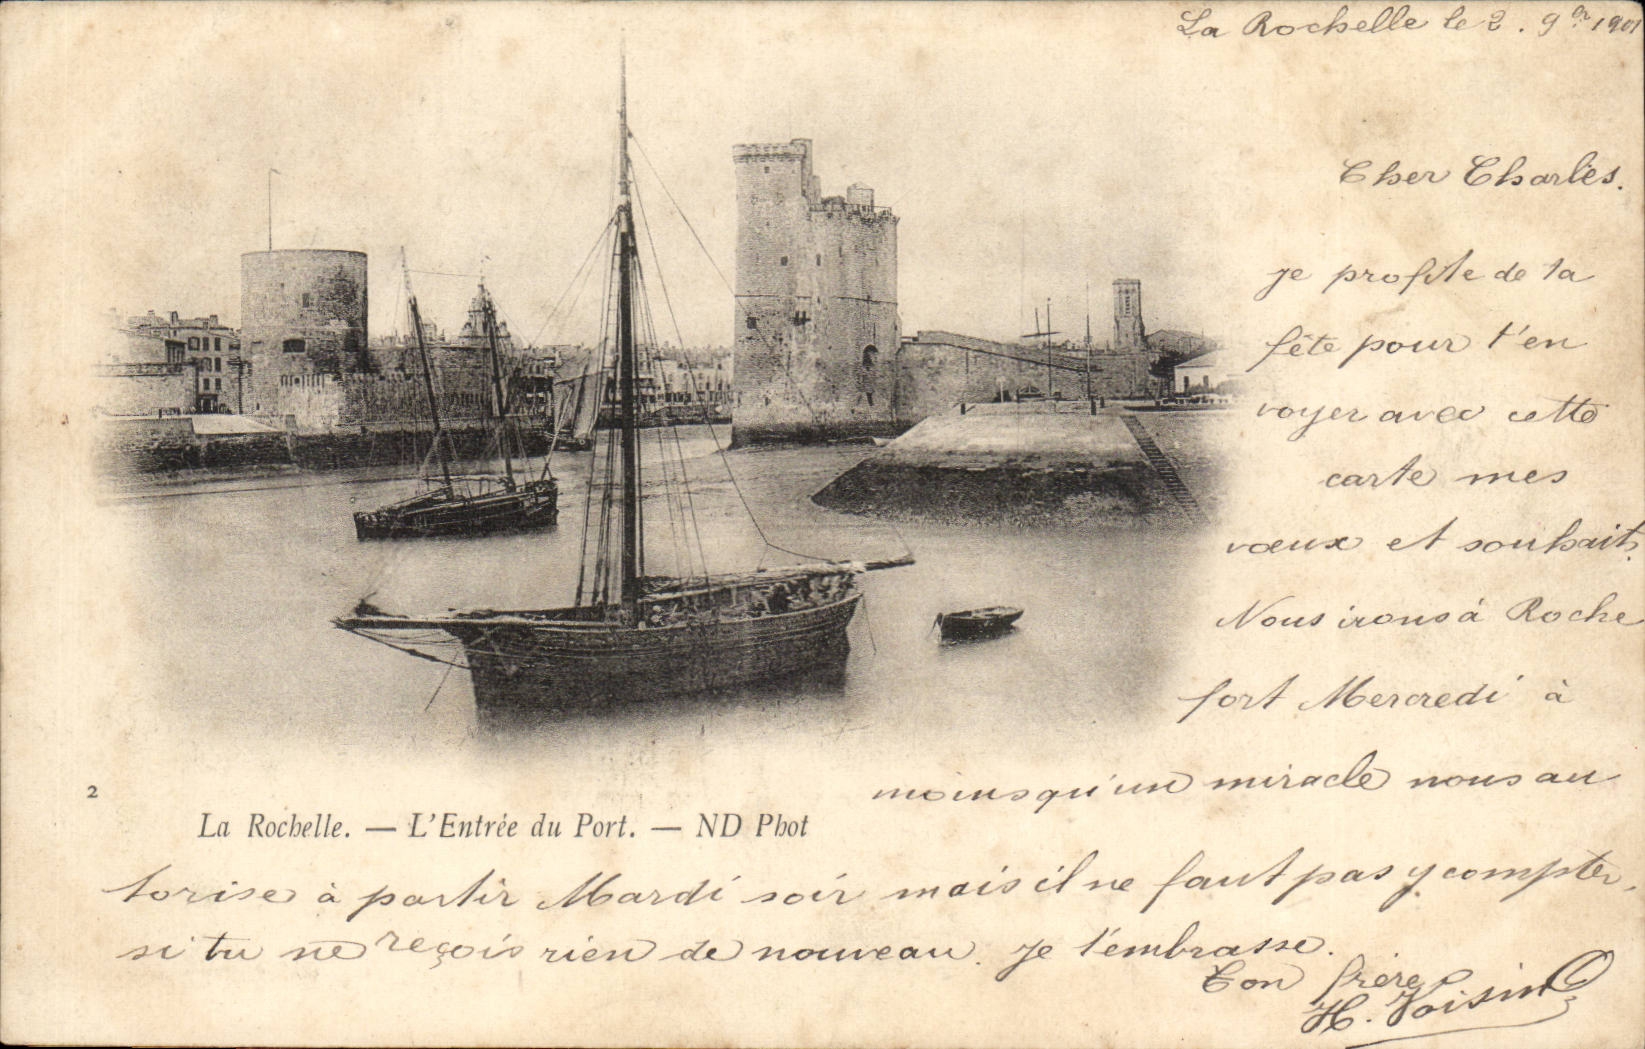 La Rochelle le 2. 9bre 1901
Cher Charles.
je profite de ta
fête pour t'en
voyer avec cette
carte mes
vœux et souhaits.
Nous irons à Roche
fort Mercredi à
moins qu'un miracle nous au
2
La Rochelle. — L'Entrée du Port. — ND Phot
torise à partir Mardi soir mais il ne faut pas y compter,
si tu ne reçois rien de nouveau. Je t'embrasse.
Ton frère
H. Voisin